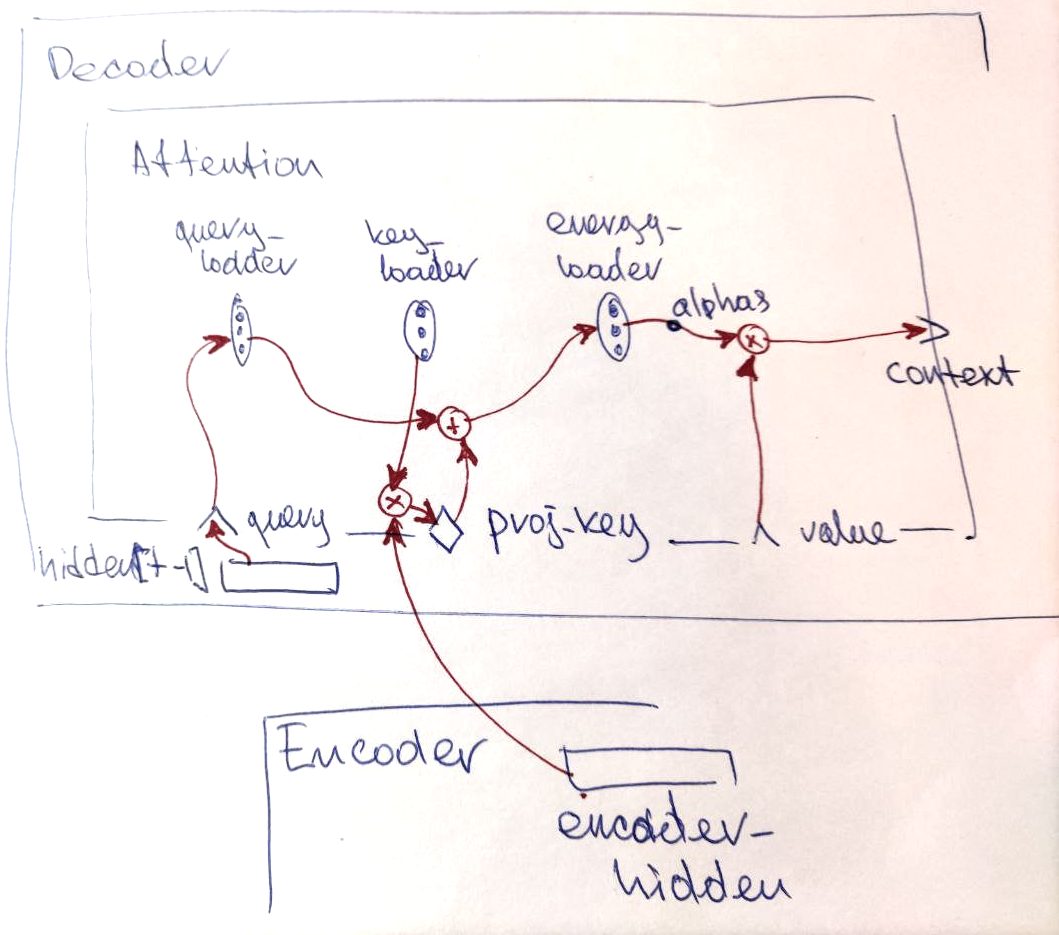 Decoder
Attention
query-
lodder
key-
loader
energy-
loader
alphas
×
context
+
×
query
proj-key
value
hidden[t-1]
Encoder
encoder-
hidden